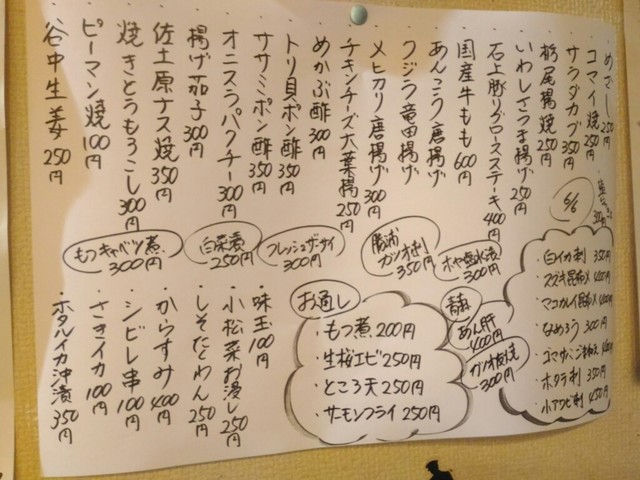 めざし 250円
コマイ焼 250円
サラダカブ 350円
栃尾揚焼 250円
いわしさつま揚げ 250円
石上豚リブロースステーキ 400円
国産牛もも 600円
あんこう唐揚げ
クジラ竜田揚げ
メヒカリ唐揚げ 300円
チキンチーズ大葉揚 250円
めかぶ酢 300円
トリ貝ポン酢 350円
ササミポン酢 350円
オニスラパクチー 300円
揚げ茄子 300円
佐土原ナス焼 350円
焼きとうもろこし 300円
ピーマン焼 100円
谷中生姜 250円
6/6
白イカ刺 350円
スズキ昆布〆 400円
マコガレイ昆布〆 400円
なめろう 300円
ホタテ刺 350円
小アワビ刺 450円
ホヤ塩水漬 300円
勝浦カツオ刺 350円
フレッシュザーサイ 300円
白菜漬 250円
もつキャベツ煮 300円
青森
あん肝 400円
300円
お通し
・もつ煮 200円
・生桜エビ 250円
・ところ天 250円
・サーモンフライ 250円
味玉 100円
小松菜お浸し 250円
しそたくわん 250円
からすみ 400円
シビレ串 100円
さきイカ 100円
ホタルイカ沖漬 350円